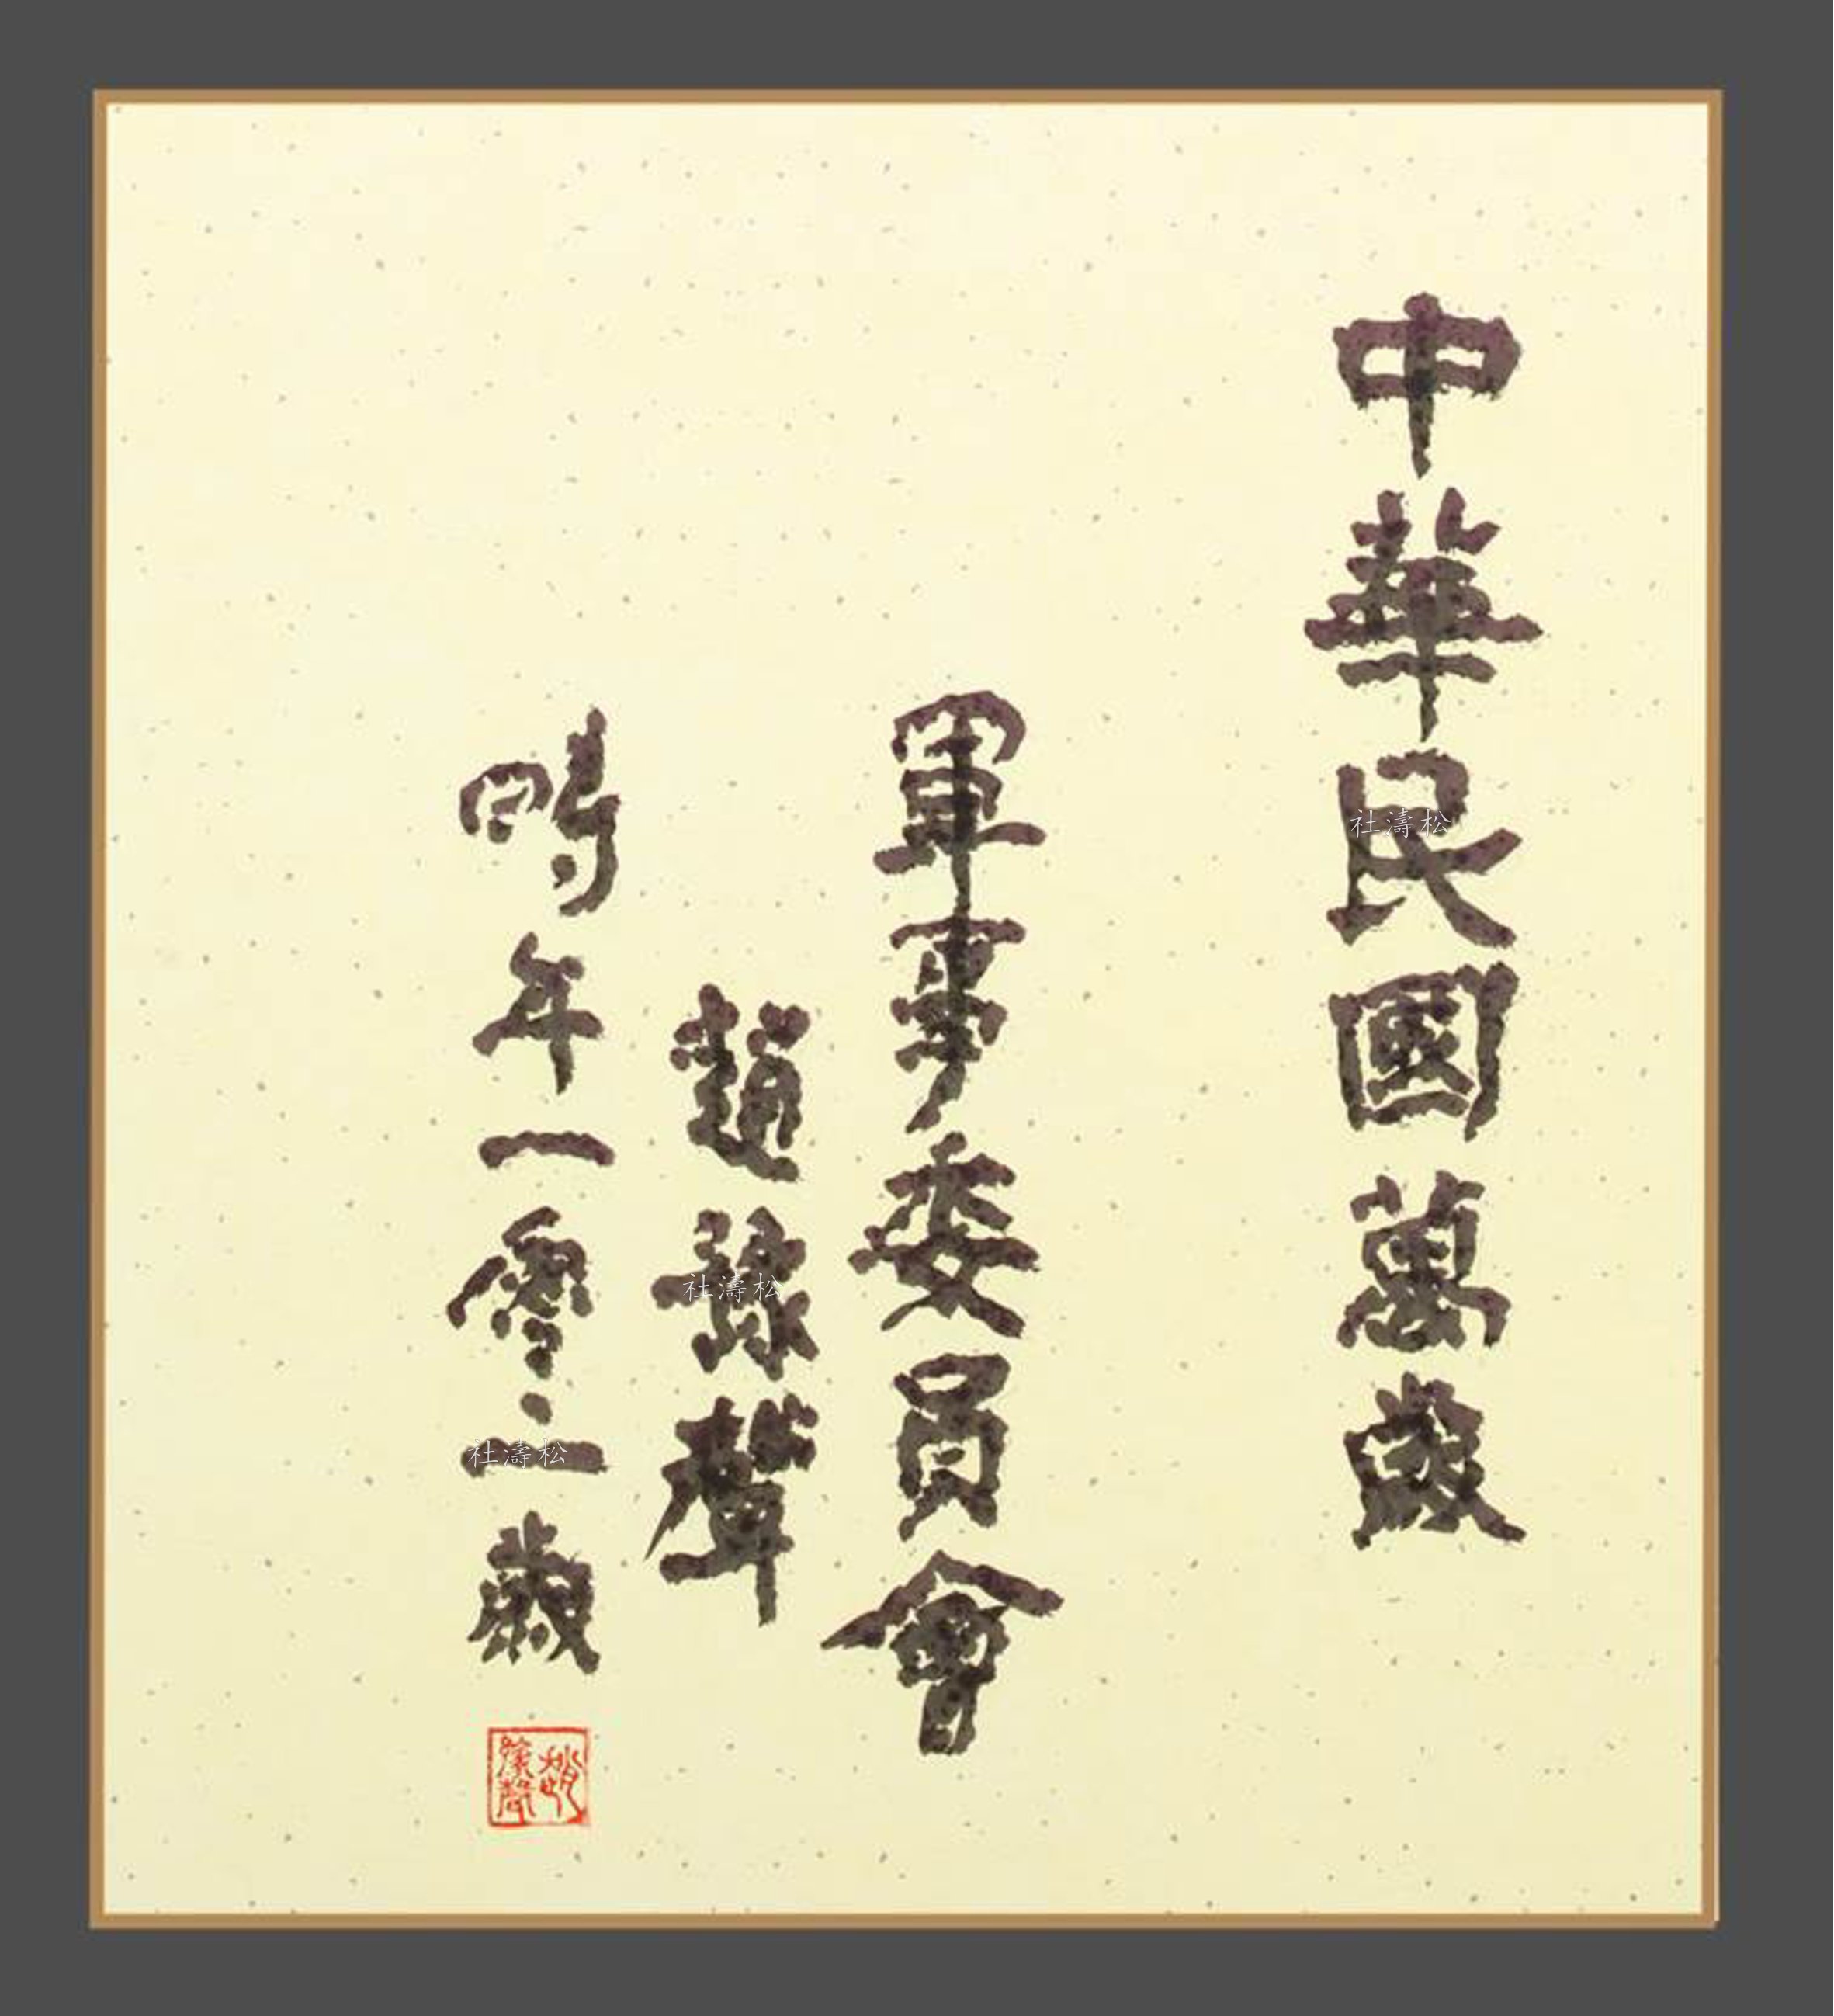 中華民國萬歲
軍事委員會
趙豫聲
時年一零二歲
趙豫聲
松濤社
松濤社
松濤社